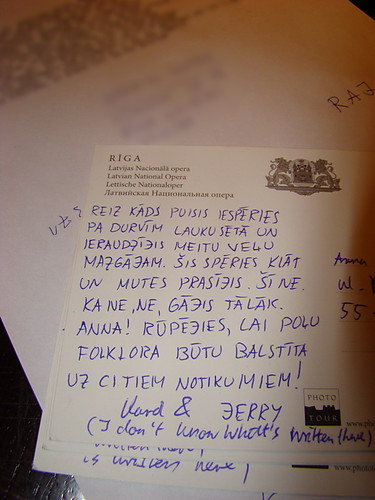 RAJ
RĪGA
Latvijas Nacionālā opera
Latvian National Opera
Lettische Nationaloper
Латвийская Национальная опера
REIZ KĀDS PUISIS IESPĒRIES
PA DURVĪM LAUKUSĒTĀ UN
IERAUDZĪJIS MEITU VEĻU
MAZGĀJAM. ŠIS SPĒRIES KLĀT
UN MUTES PRASĪJIS. ŠĪ NE.
KA NE, NE, GĀJIS TĀLĀK.
ANNA! RŪPĒJIES, LAI POĻU
FOLKLORA BŪTU BALSTĪTA
UZ CITIEM NOTIKUMIEM!
Anna
ul.
55-
& JERRY
(I don't know what's written here)
is written here)
PHOTO
TOUR
www.ph